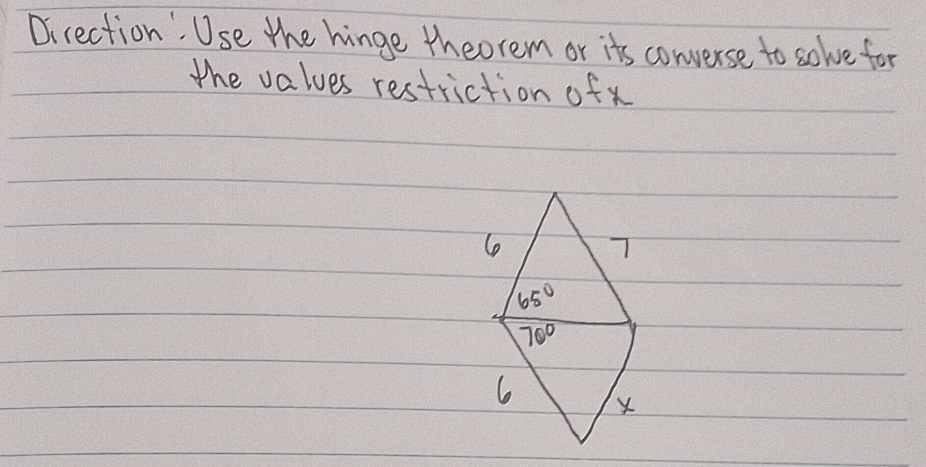 Direction: Use the hinge theorem or its converse to solve for
the values restriction of x
6
7
65°
70°
6
x